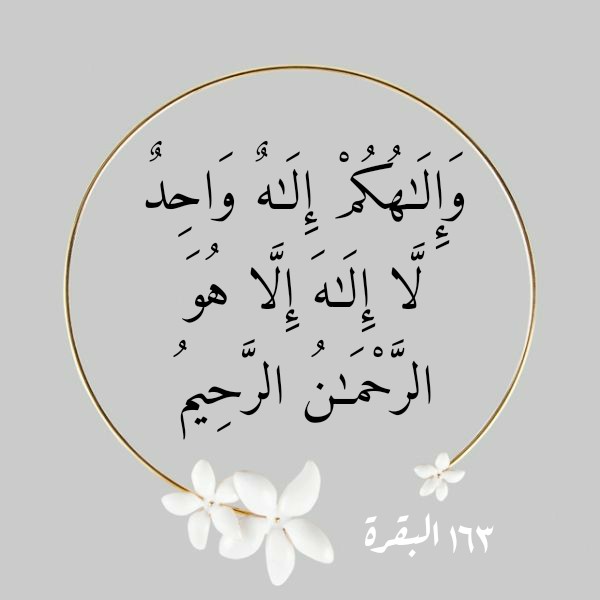 وَإِلَـٰهُكُمْ إِلَـٰهٌ وَاحِدٌ
لَّا إِلَـٰهَ إِلَّا هُوَ
الرَّحْمَـٰنُ الرَّحِيمُ
١٦٣ البقرة